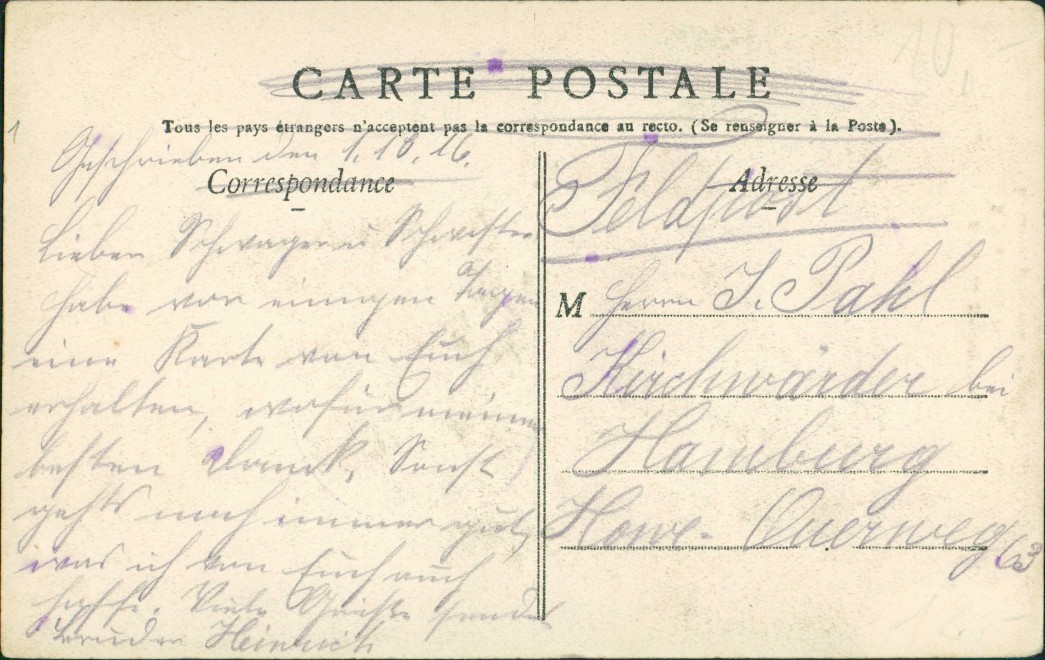 10.
CARTE POSTALE
Tous les pays étrangers n'acceptent pas la correspondance au recto. (Se renseigner à la Poste).
1
Geschrieben den 1.10.16.
Correspondance
Lieber Schwager u Schwester
habe vor einigen Tagen
eine Karte von Euch
erhalten, wofür meinen
besten Dank, Sonst
gehts noch immer gut,
was ich von Euch auch
hoffe. Viele Grüße sendet
Bruder Heinrich
Adresse
Feldpost
M Herrn J. Pahl
Kirchwärder bei
Hamburg
Howe- Querweg
63